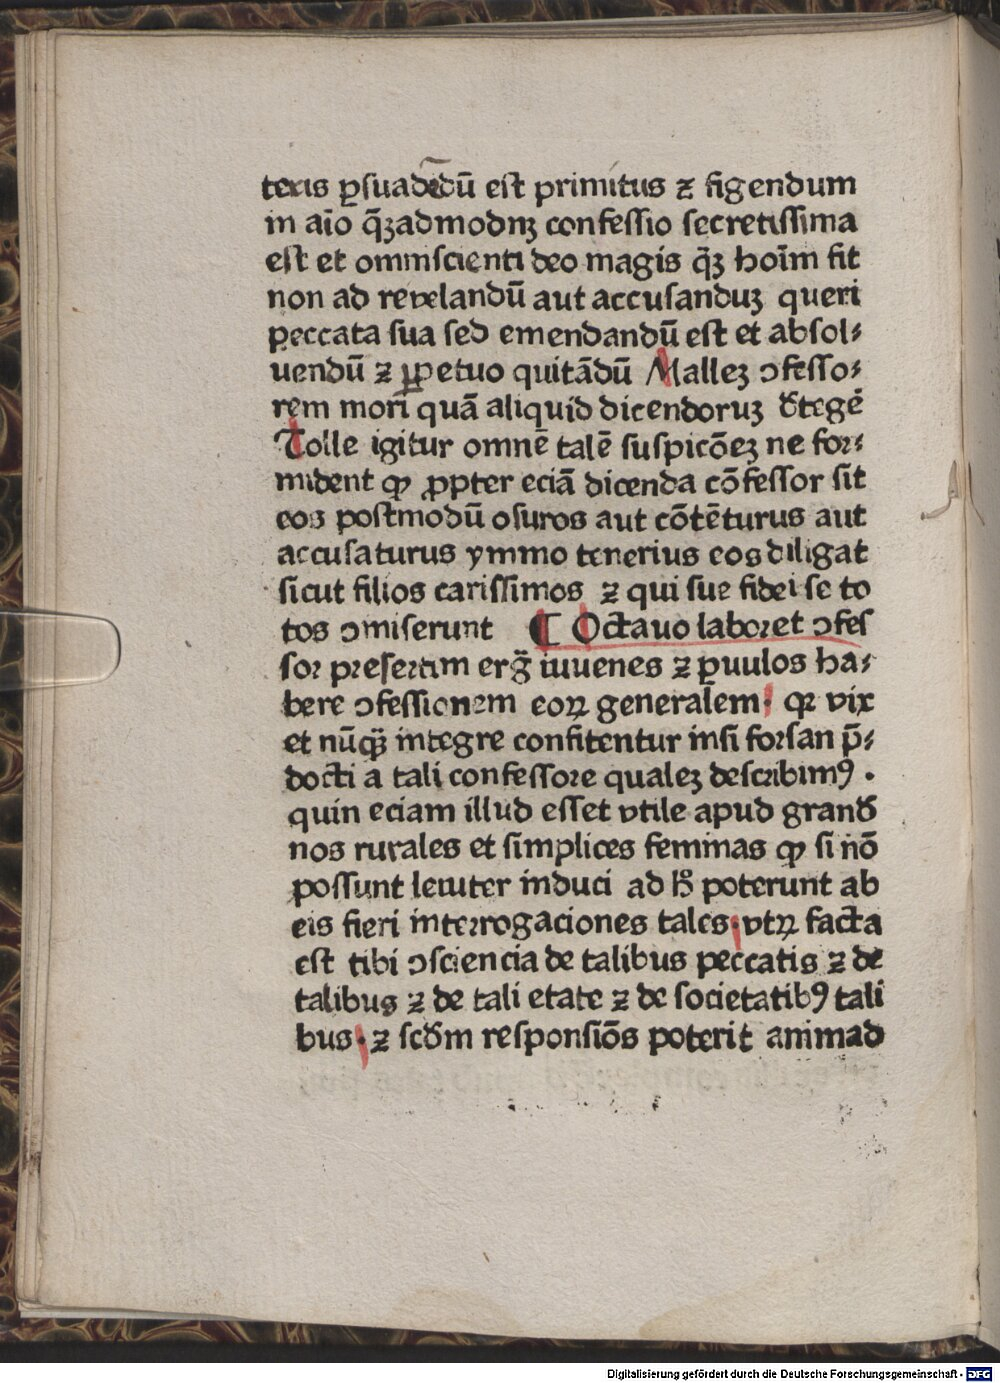 teris ꝑsuadēdū est primitus ⁊ figendum
in aīo q̄ꝫadmoduꝫ confessio secretissima
est et omniscienti deo magis q̄ꝫ hoīm fit
non ad reuelandū aut accusanduꝫ queri
peccata sua sed emendandū est et absol⸗
uendū ⁊ ꝑpetuo quitādū Malleꝫ ↄfesso⸗
rem mori quā aliquid dicendoruꝫ d̄tegē
Tolle igitur omnē talē suspicōeꝫ ne for⸗
mident ꝙ ꝓpter eciā dicenda cōfessor sit
eos postmodū osuros aut cōtēturus aut
accusaturus ymmo tenerius eos diligat
sicut filios carissimos ⁊ qui sue fidei se to
tos ↄmiserunt ¶ Octauo laboret ↄfes
sor presertim erḡ iuuenes ⁊ ꝑuulos ha⸗
bere ↄfessionem eoꝝ generalem. qꝛ vix
et nūqꝫ̄ integre confitentur insi forsan p̄⸗
docti a tali confessore qualeꝫ describimꝰ .
quin eciam illud esset vtile apud grand̄
nos rurales et simplices feminas ꝙ si nō
possunt leuiter induci ad h̄ poterunt ab
eis fieri interrogaciones tales. vtꝝ facta
est tibi ↄsciencia de talibus peccatis ⁊ de
talibus ⁊ de tali etate ⁊ de societatibꝰ tali
bus. ⁊ scd̄m responsiōs poterit animad
Digitalisierung gefördert durch die Deutsche Forschungsgemeinschaft - DFG